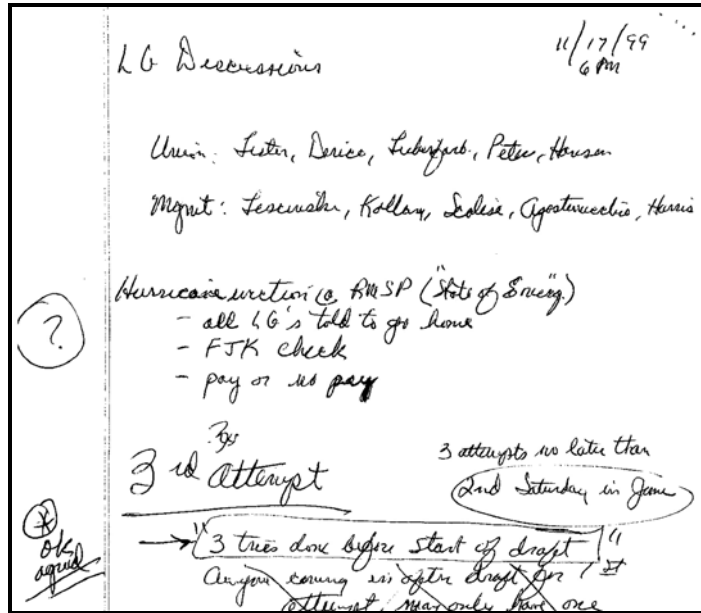 LG Discussions
11/17/99
6 PM
Union: Lister, Derico, Peter, Hansen
Mgmt: Kollam, Scalise, Harris
?
Hurricane @ RMSP ("State of Emerg.")
- all LG's told to go home
- FJK check
- pay or no pay
3rd attempt
3 attempts no later than
2nd Saturday in June
* OK
agreed
→ "3 tries done before start of draft"
Anyone coming in after draft for 1st
attempt, may only have one